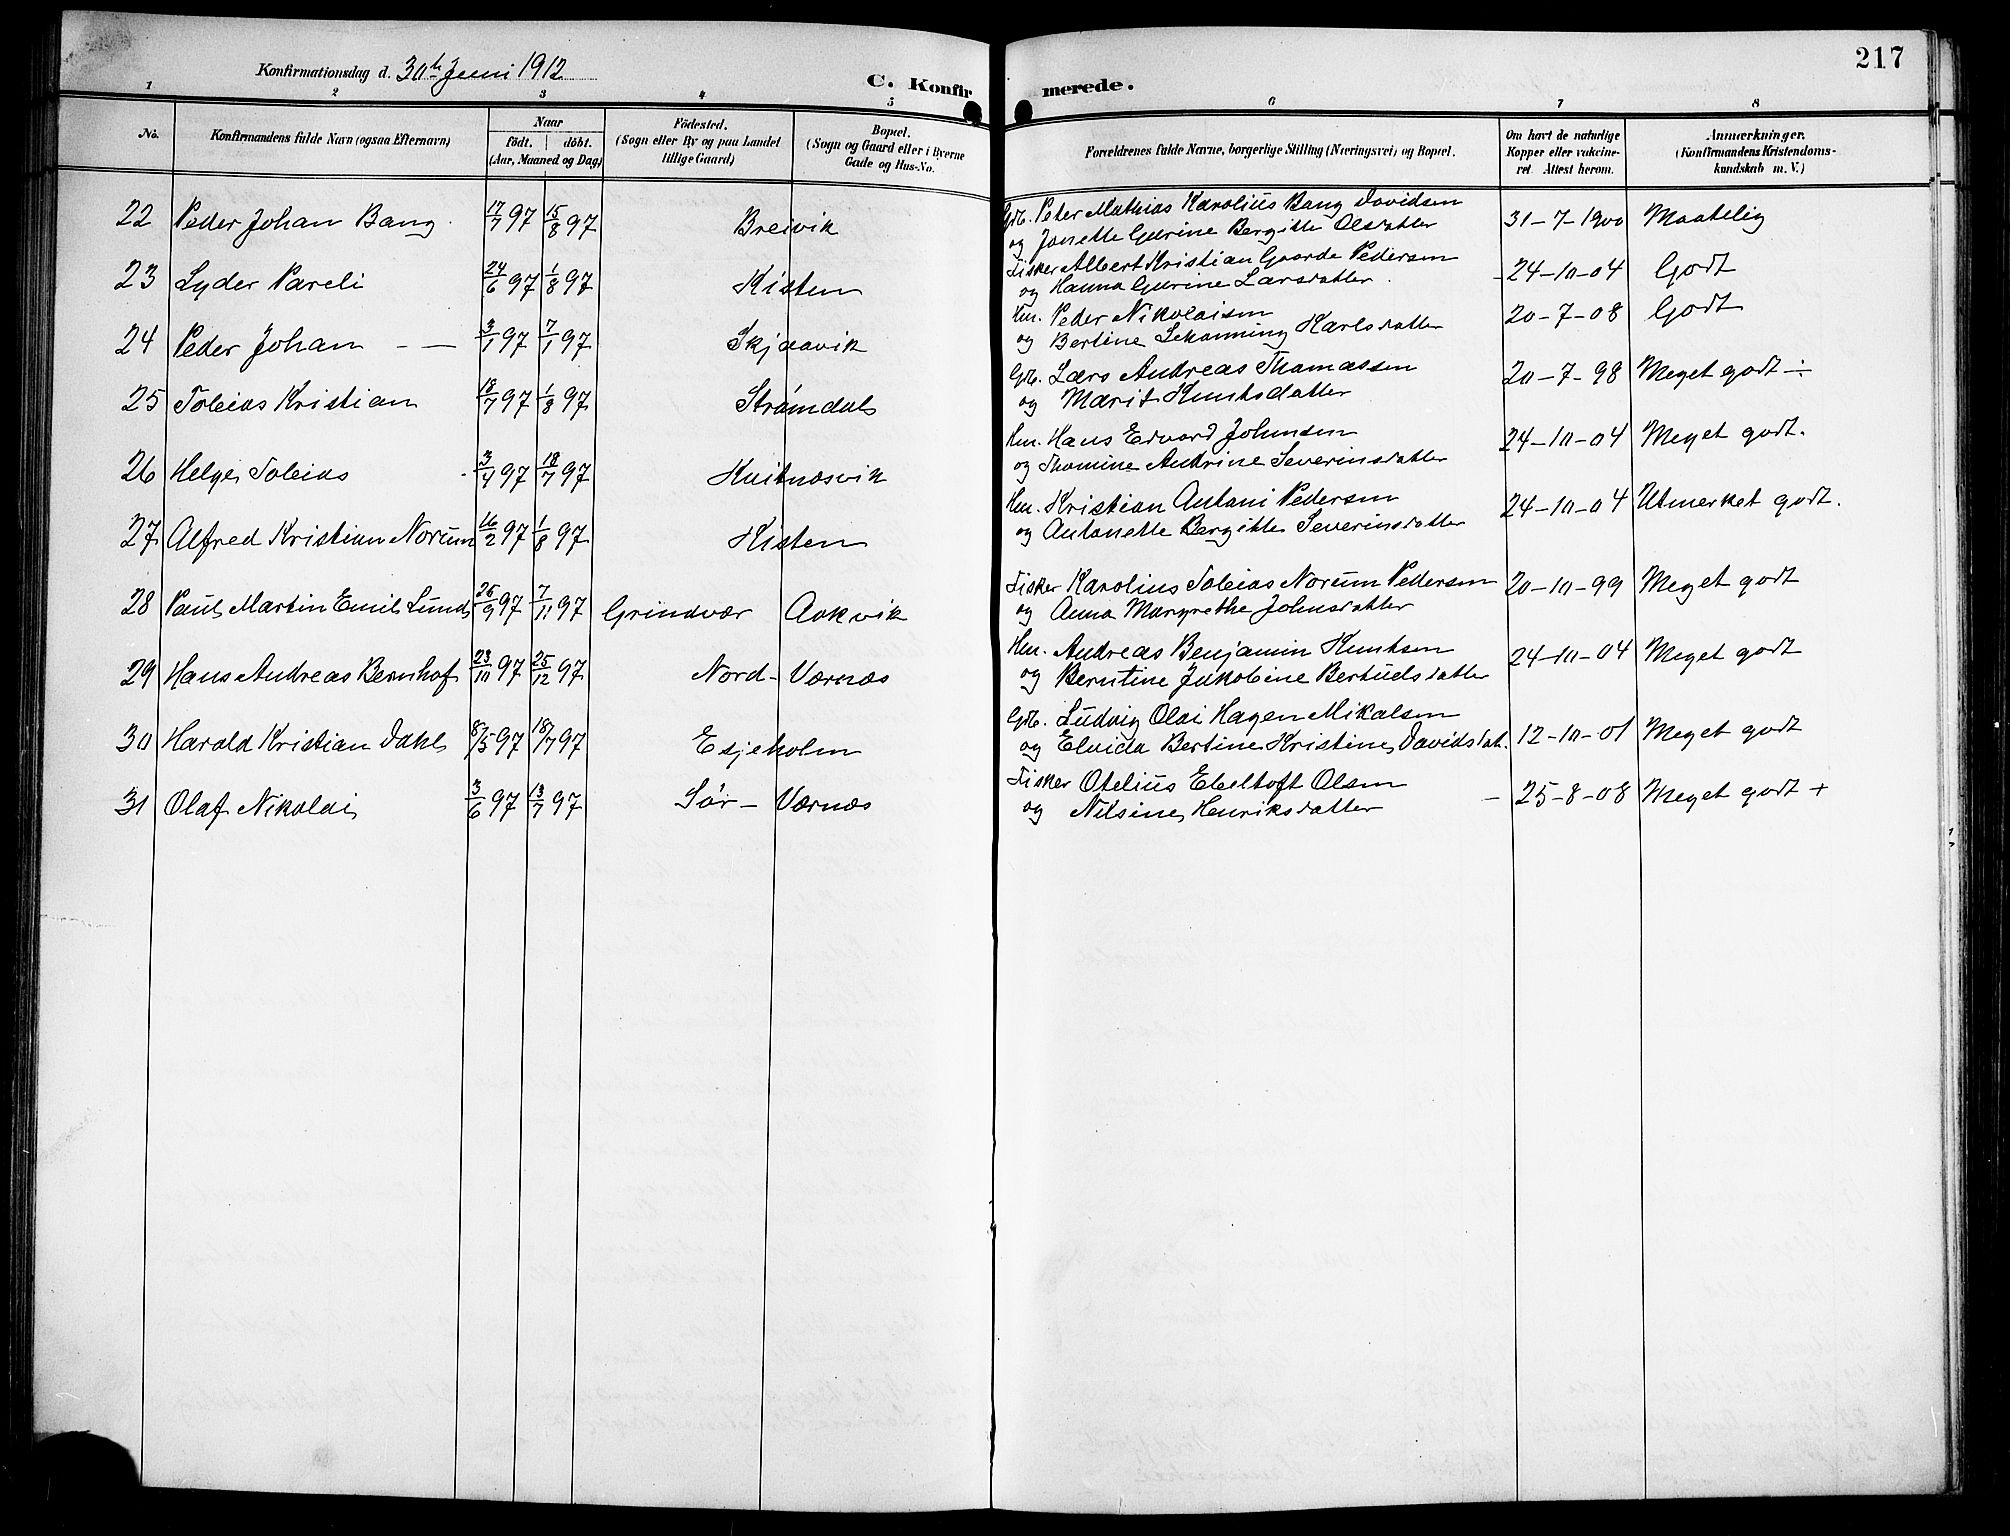 217
Konfirmationsdag d. 30te Juni 1912
C. Konfirmerede.
1 2 3 4 5 6 7 8
No. Konfirmandens fulde Navn (ogsaa Efternavn) Naar födt. döbt. (Aar, Maaned og Dag) Födested. (Sogn eller By og paa Landet tillige Gaard) Bopæl. (Sogn og Gaard eller i Byerne Gade og Hus-No. Forældrenes fulde Navne, borgerlige Stilling (Næringsvei) og Bopæl. Om havt de naturlige Kopper eller vakcineret. Attest herom. Anmærkninger. (Konfirmandens Kristendomskundskab m. V.)
22 Peder Johan Bang 17/7 97 15/8 97 Breivik Gdb. Peter Mathias Karolius Bang Davidsen 31-7-1900 Maadelig
og Jonette Gurine Bergitte Olsdatter
23 Lyder Pareli 24/6 97 1/8 97 Kisten Fisker Albert Kristian Gaarde Pedersen 24-10-04 Godt
og Hanna Gurine Larsdatter
24 Peder Johan 3/1 97 7/1 97 Skjaavik Hm. Peder Nikolaisen 20-7-08 Godt
og Bertine Schanning Karlsdatter
25 Tobias Kristian 18/7 97 1/8 97 Strømdal Gdb. Lars Andreas Thomassen 20-7-98 Meget godt ÷
og Marit Knutsdatter
26 Helge Tobias 3/4 97 18/7 97 Kvitnæsvik Hm. Hans Edvard Johnsen 24-10-04 Meget godt.
og Thomine Andrine Severinsdatter
27 Alfred Kristian Norum 16/2 97 1/8 97 Kisten Hm. Kristian Antoni Pedersen 24-10-04 Utmerket godt.
og Antonette Bergitte Severinsdatter
28 Paul Martin Emil Lund 26/9 97 7/11 97 Grindvær Aakvik Fisker Karolius Tobias Norum Pedersen 20-10-99 Meget godt
og Anna Margrethe Johnsdatter
29 Hans Andreas Bernhof 23/10 97 25/12 97 Nord-Værnæs Hm. Andreas Benjamin Knutsen 24-10-04 Meget godt
og Berntine Jakobine Bertudsdatter
30 Harald Kristian Dahl 8/5 97 18/7 97 Esjeholm Gdb. Ludvig Olai Hagen Mikalsen 12-10-01 Meget godt
og Elvida Bertine Kristine Davidsdat.
31 Olaf Nikolai 3/6 97 13/7 97 Sør-Værnæs Fisker Otelius Ebeltoft Olsen 25-8-08 Meget godt +
og Nilsine Henriksdatter